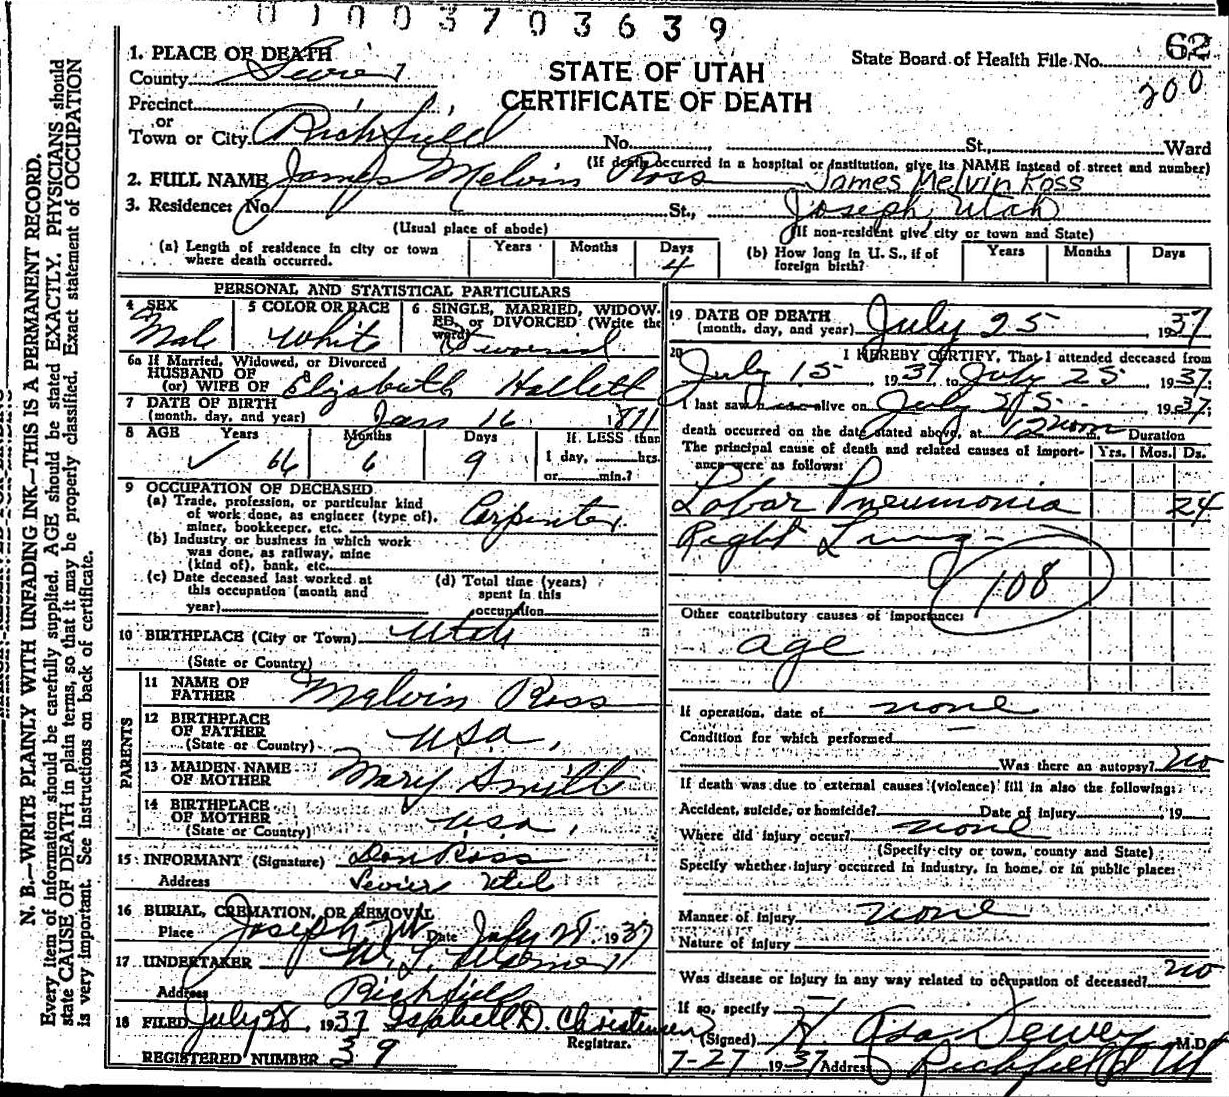 0 1 0 0 3 7 0 3 6 3 9
1. PLACE OF DEATH
County Sevier
Precinct
or
Town or City Richfield No. St., Ward
(If death occurred in a hospital or institution, give its NAME instead of street and number)
STATE OF UTAH
CERTIFICATE OF DEATH
State Board of Health File No. 62
200
2. FULL NAME James Melvin Ross James Melvin Ross
3. Residence: No. St., Joseph, Utah
(Usual place of abode) (If non-resident give city or town and State)
(a) Length of residence in city or town where death occurred. Years Months Days 4
(b) How long in U. S., if of foreign birth? Years Months Days
PERSONAL AND STATISTICAL PARTICULARS
4 SEX Male
5 COLOR OR RACE White
6 SINGLE, MARRIED, WIDOWED, or DIVORCED (Write the word) Divorced
6a If Married, Widowed, or Divorced
HUSBAND OF
(or) WIFE OF Elizabeth Hallett
7 DATE OF BIRTH
(month, day, and year) Jan 16 1871
8 AGE Years 66 Months 6 Days 9 If LESS than 1 day, hrs. or min.?
9 OCCUPATION OF DECEASED
(a) Trade, profession, or particular kind of work done, as engineer (type of), miner, bookkeeper, etc. Carpenter
(b) Industry or business in which work was done, as railway, mine (kind of), bank, etc.
(c) Date deceased last worked at this occupation (month and year)
(d) Total time (years) spent in this occupation
10 BIRTHPLACE (City or Town) Utah
(State or Country)
PARENTS
11 NAME OF FATHER Melvin Ross
12 BIRTHPLACE OF FATHER U.S.A.
(State or Country)
13 MAIDEN NAME OF MOTHER Mary Smith
14 BIRTHPLACE OF MOTHER U.S.A.
(State or Country)
15 INFORMANT (Signature) Don Ross
Address Sevier Utah
16 BURIAL, CREMATION, OR REMOVAL
Place Joseph Ut Date July 28 1937
17 UNDERTAKER W. L.
Address Richfield
18 FILED July 28, 1937 Isabell D. Christensen
Registrar.
REGISTERED NUMBER 39
19 DATE OF DEATH
(month, day, and year) July 25 1937
20 I HEREBY CERTIFY, That I attended deceased from
July 15 1937 to July 25 1937;
I last saw h alive on July 25 1937;
death occurred on the date stated above, at 12 noon m. Duration
The principal cause of death and related causes of importance were as follows: Yrs. Mos. Ds.
Lobar Pneumonia 24
Right Lung
108
Other contributory causes of importance:
age
If operation, date of none
Condition for which performed
Was there an autopsy? no
If death was due to external causes (violence) fill in also the following:
Accident, suicide, or homicide? Date of injury 19
Where did injury occur? none
(Specify city or town, county and State)
Specify whether injury occurred in industry, in home, or in public place:
Manner of injury none
Nature of injury
Was disease or injury in any way related to occupation of deceased? no
If so, specify
(Signed) H. Asa Dewey M.D.
7-27 1937 Address Richfield Ut
N. B.—WRITE PLAINLY WITH UNFADING INK—THIS IS A PERMANENT RECORD.
Every item of information should be carefully supplied. AGE should be stated EXACTLY. PHYSICIANS should
state CAUSE OF DEATH in plain terms, so that it may be properly classified. Exact statement of OCCUPATION
is very important. See instructions on back of certificate.